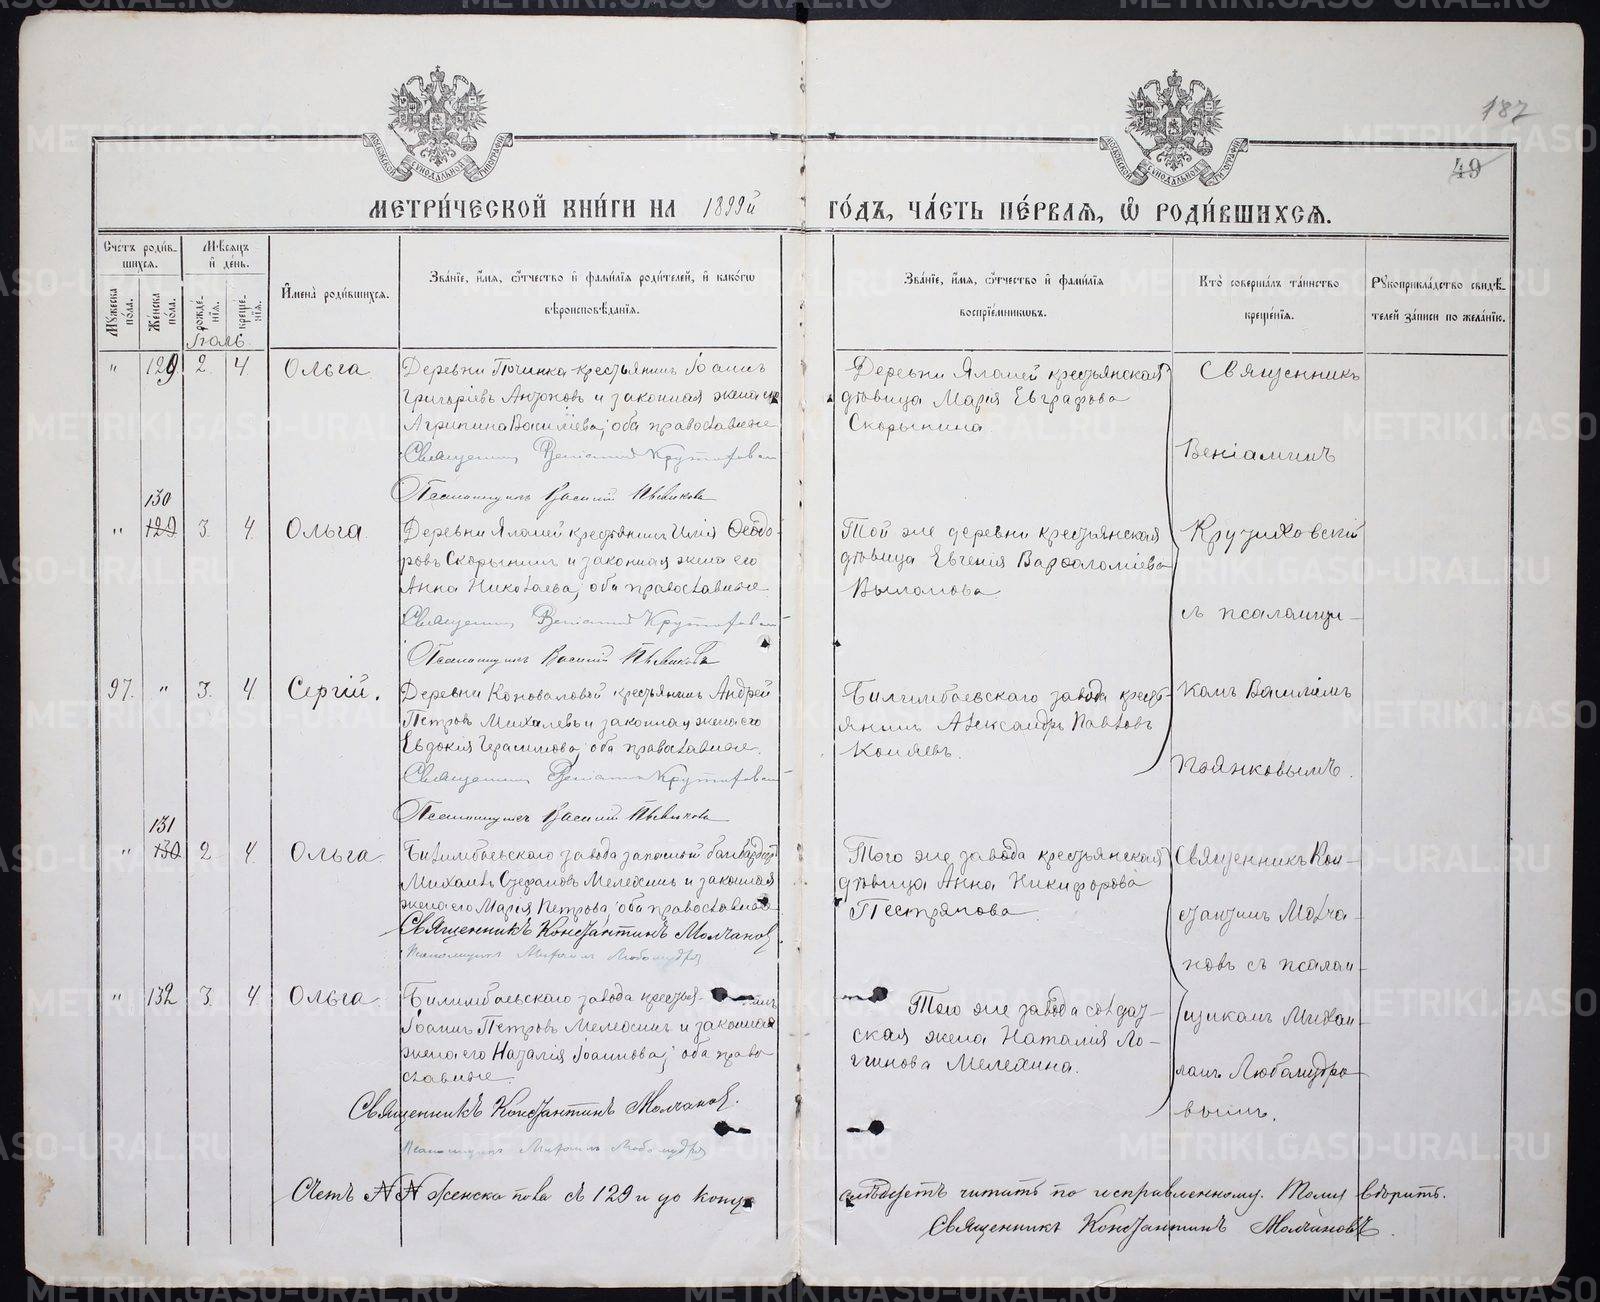 187
49
МОСКОВСКОЙ СѴНОДАЛЬНОЙ ТИПОГРАФІИ
МОСКОВСКОЙ СѴНОДАЛЬНОЙ ТИПОГРАФІИ
МЕТРИ́ЧЕСКОЙ КНИ́ГИ НА 1899й ГО́ДЪ, ЧА́СТЬ ПЕ́РВАѦ, Ѿ РОДИ́ВШИХСѦ.
Сче́тъ роди́в-
шихсѧ.
Мꙋ́жеска по́ла.
Же́нска по́ла.
Мѣ́сѧцъ
и҆ де́нь.
рожде́-
нїѧ.
креще́-
нїѧ.
И҆мена̀ роди́вшихсѧ.
Зва́нїе, и҆́мѧ, ѻ҆́тчество и҆ фами́лїѧ роди́телей, и҆ како́гѡ
вѣроисповѣ́данїѧ.
Зва́нїе, и҆́мѧ, ѻ҆́тчество и҆ фами́лїѧ
воспрїе́мникѡвъ.
Кто̀ соверша́лъ та́инство
креще́нїѧ.
Рꙋкоприкла́дство свидѣ́-
телей за́писи по жела́нїю.
Іюль
" 129 2. 4. Ольга.
Деревни Починка крестьянинъ Іоаннъ
Григоріевъ Антоновъ и законная жена его
Агрипина Васильева, оба православные
Священникъ Веніаминъ
Псаломщикъ Василій Пьянковъ
Деревни Яланей крестьянская
дѣвица Марія Евграфова
Скорынина
Священникъ
Веніаминъ
130
" 129 3. 4. Ольга.
Деревни Яланей крестьянинъ Илія Ѳеодо-
ровъ Скорынинъ и законная жена его
Анна Николаева, оба православные.
Священникъ Веніаминъ
Псаломщикъ Василій Пьянковъ
Той же деревни крестьянская
дѣвица Евгенія Варѳоломіева
съ псаломщи-
97. " 3. 4 Сергій.
Деревни Коноваловой крестьянинъ Андрей
Петровъ Михалевъ и законная жена его
Евдокия Герасимова, оба православные.
Священникъ Веніаминъ
Псаломщикъ Василій Пьянковъ
Билимбаевскаго завода кресть-
янинъ Александръ Павловъ
комъ Василіемъ
Пьянковымъ.
131
" 130 2. 4. Ольга.
Билимбаевскаго завода запасный бомбардиръ
Михаилъ Стефановъ Мелехинъ и законная
жена его Марія Петрова, оба православные
Священникъ Константинъ Молчановъ
Псаломщикъ Михаилъ Любомудровъ
Того же завода крестьянская
дѣвица Анна Никифорова
Пестрякова.
Священникъ Кон-
стантинъ Молча-
новъ съ псалом-
" 132 3. 4 Ольга
Билимбаевскаго завода крестья-нинъ
Іоаннъ Петровъ Мелехинъ и законная
жена его Наталія Іоаннова, оба право-
славные.
Священникъ Константинъ Молчановъ.
Псаломщикъ Михаилъ Любомудровъ
Того же завода солдат-
ская жена Наталія Ло-
гинова Мелехина.
щикомъ Михаи-
ломъ Любомудро-
вымъ.
Счетъ №№ женска пола съ 129 и до конца слѣдуетъ читать по исправленному.
Священникъ Константинъ Молчановъ.